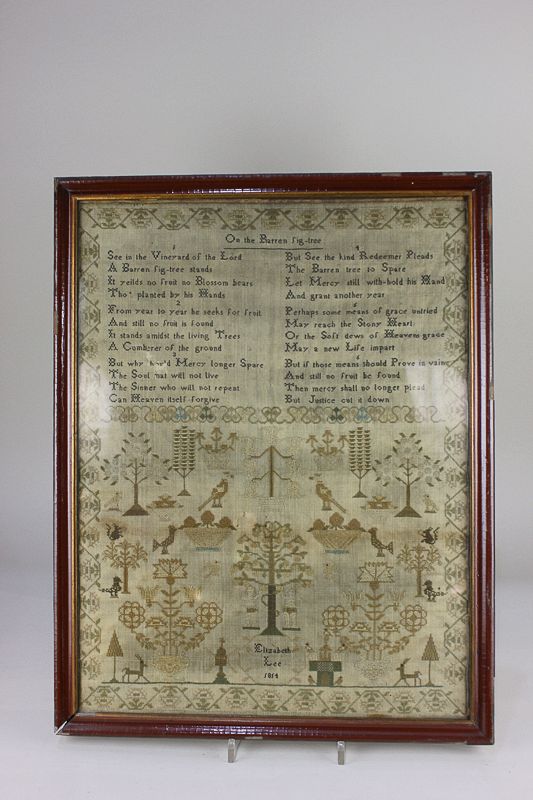 On the Barren fig-tree
1
See in the Vineyard of the Lord
A Barren fig-tree stands
It yeilds no fruit no Blossom bears
Tho' planted by his Hands
2
From year to year he seeks for fruit
And still no fruit is found
It stands amidst the living Trees
A Cumberer of the ground
3
But why shou'd Mercy longer Spare
The Soul that will not live
The Sinner who will not repent
Can Heaven itself forgive
4
But See the kind Redeemer Pleads
The Barren tree to Spare
Let Mercy still with-hold his Hand
And grant another year
5
Perhaps some means of grace untried
May reach the Stony Heart
Or the Soft dews of Heavens grace
May a new Life impart
6
But if those means should Prove in vain
And still no fruit be found
Then mercy shall no longer plead
But Justice cut it down
Elizabeth
Lee
1814